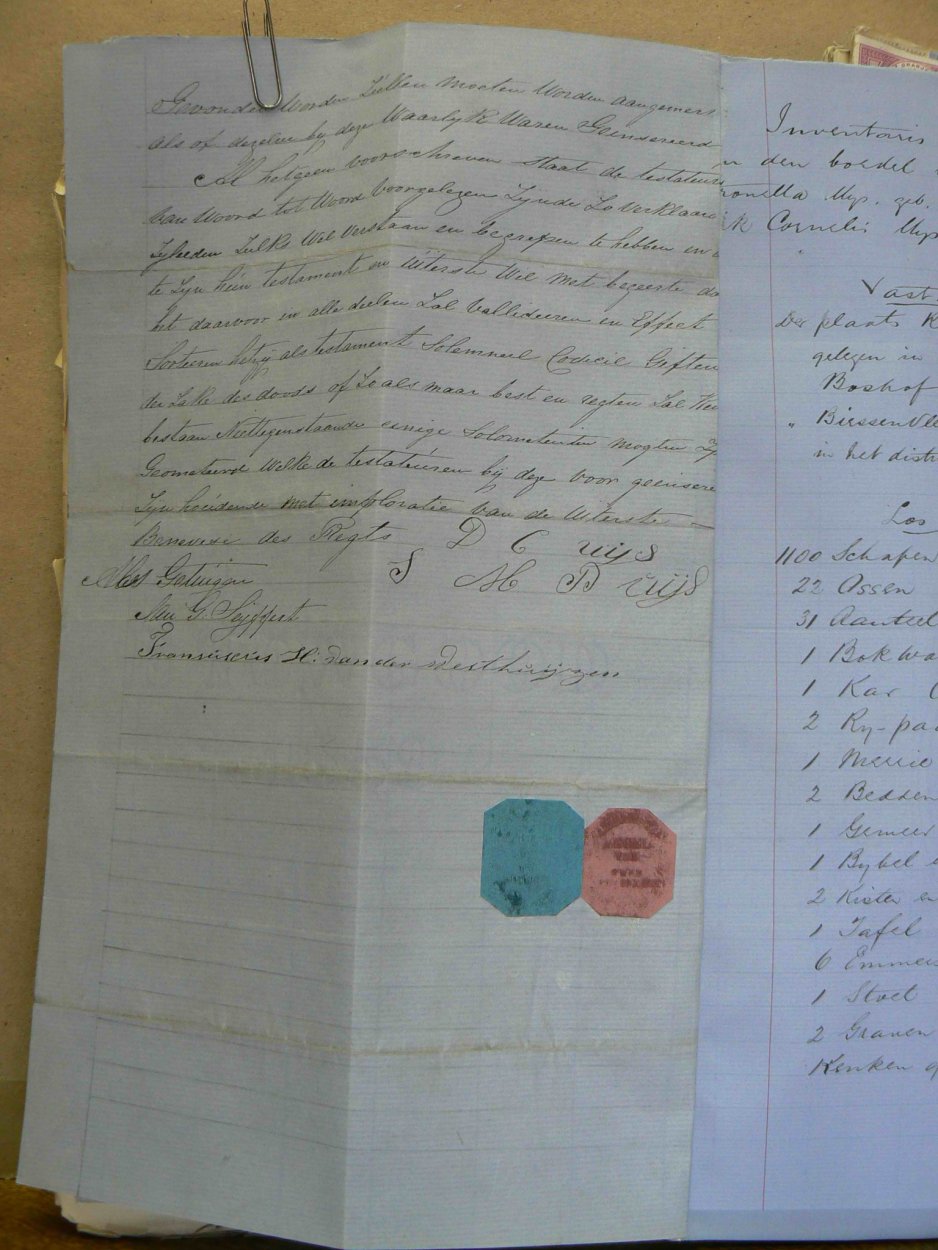 Gevonden Worden Zullen moeten Worden aangemerk
als of dezelen bij deze Waarlyk Waren Geinsereerd
Al hetgeen voorschreven staat de testateuren
van Woord tot Woord voorgelezen Zijnde Zo verklaar
Zyheden Zulks Wel Verstaan en begrepen te hebben en
te Zyn hun testament en Uiterste Wil met begeerte da
het daarvoor in alle deelen Zal Vallideeren en Effect
Sorteren hetzij als testament Solemneel Codecil Giften
der Zake des doods of Zo als maar best en regten Zal
bestaan Niettegenstaande eenige Solometeiten mogten Zy
Geometeerd Welke de testateuren bij deze voor geinsere
Zyn houdense met imploratie van de Uiterste
Benevese des Regts D C uijs
S M P uijs
Als Getuigen
G. Seyffert
Franciscus H. van der Westhuijzen
Inventaris
den boedel
Mys. geb.
Cornelis Mys
Vast
De plaats
gelegen in
Boshof
„ Biessenvle
in het distr
Los
1100 Schapen
22 Ossen
31 Aanteel
1 Bokwa
1 Kar
2 Ry-paa
1 Merrie
2 Bedden
1 Gemeer
1 Bybel e
2 Kisten en
1 Tafel
6 Emmers
1 Stoel
2 Graven
Keuken g